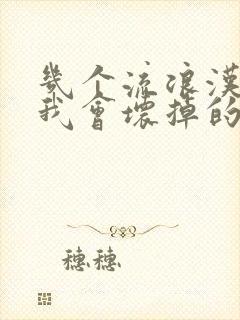 幾个流浪漢
我會壞掉的
穗穗